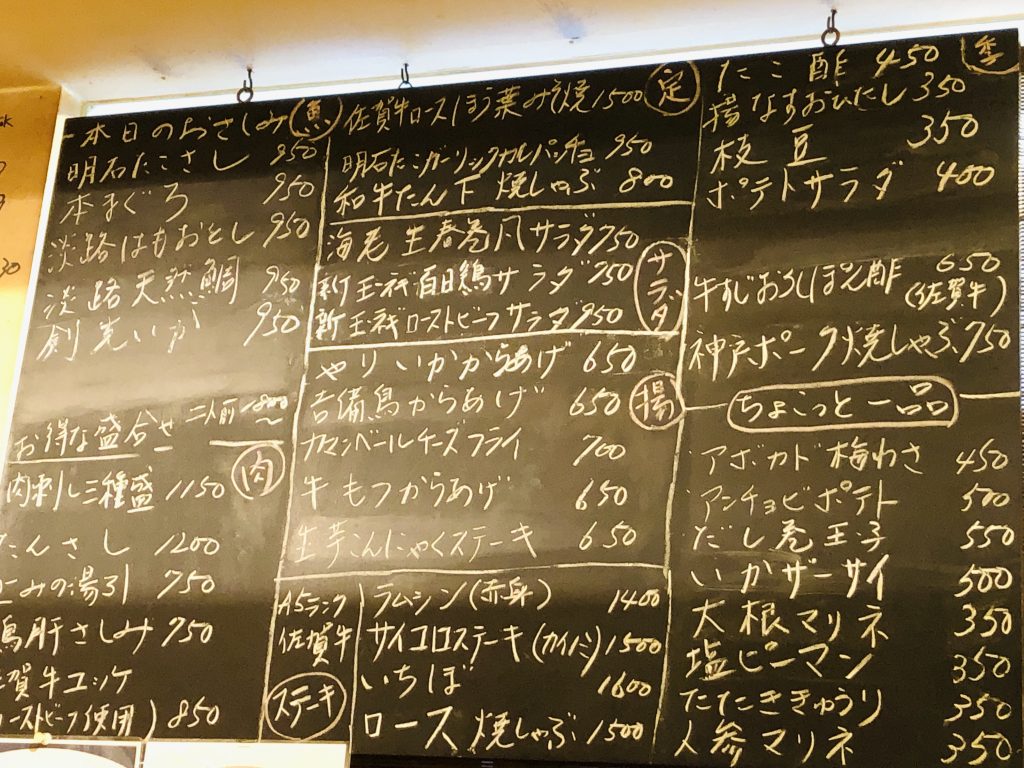 本日のおさしみ 魚
明石たこさし 950
本まぐろ 950
淡路はもおとし 950
淡路天然鯛 950
剣先いか 950
お得な盛合せ 二人前 1800〜
肉
肉刺し三種盛 1150
たんさし 1200
みの湯引 750
鳥肝さしみ 750
佐賀牛ユッケ
ローストビーフ使用) 850
佐賀牛ロースほう葉みそ焼 1500 定
明石たこガーリックカルパッチョ 950
和牛たん下焼しゃぶ 800
海老生春巻風サラダ 750
新玉ネギ百日鶏サラダ 750
新玉ネギローストビーフサラダ 950
サラダ
やりいかからあげ 650
吉備鳥からあげ 650
揚
カマンベールチーズフライ 700
牛もつからあげ 650
生芋こんにゃくステーキ 650
A5ランク
佐賀牛
ステーキ
ラムシン(赤身) 1400
サイコロステーキ(カイノミ) 1500
いちぼ 1600
ロース焼しゃぶ 1500
たこ酢 450 季
揚なすおひたし 350
枝豆 350
ポテトサラダ 400
牛すじおろしぽん酢 650
(佐賀牛)
神戸ポーク焼しゃぶ 750
ちょこっと一品
アボカド梅わさ 450
アンチョビポテト 500
だし巻玉子 550
いかザーサイ 500
大根マリネ 350
塩ピーマン 350
たたききゅうり 350
人参マリネ 350